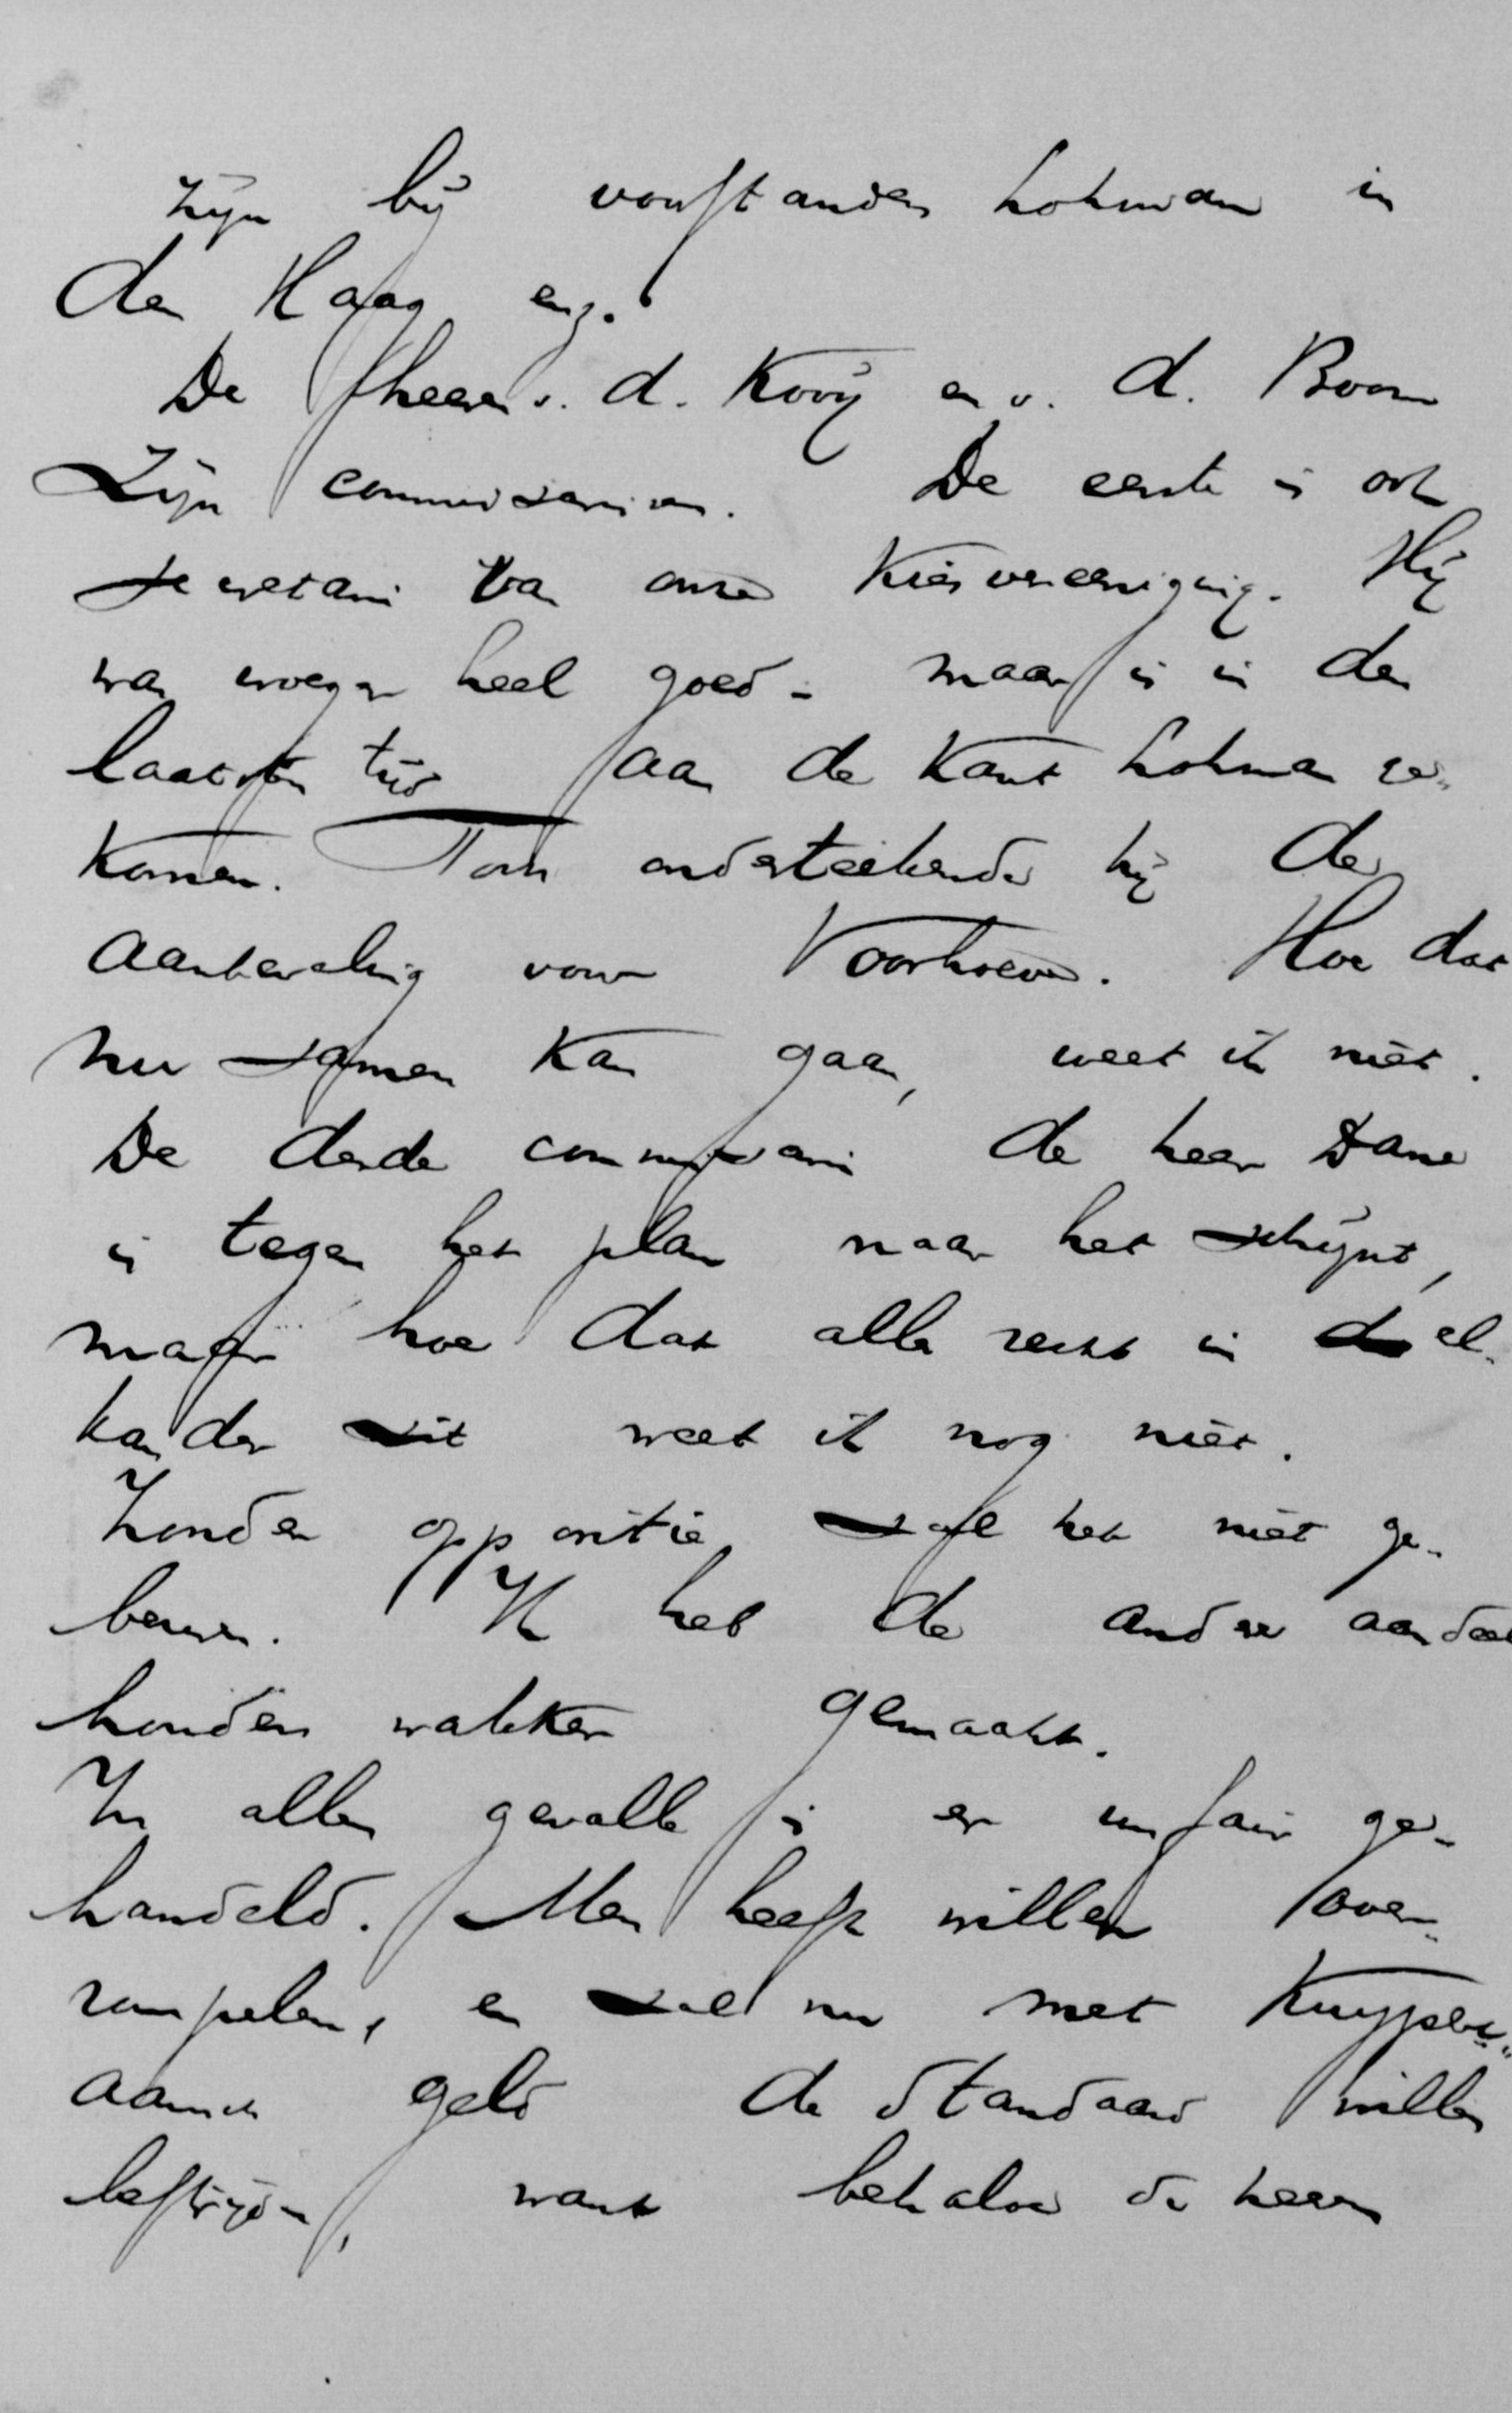 zijn bij voorstander Lohman in
den Haag enz.
De heeren v. d. Kooij en v. d. Boom
zijn commissarissen. De eerste is ook
secretaris van onze Kiesvereeniging. Hij
was vroeger heel goed - maar is in den
laatsten tijd aan de kant Lohman ge-
komen. Toch onderteekende hij de
aanbeveling voor Voorhoeve. Hoe dat
nu samen kan gaan, weet ik niet.
De derde commissaris de heer Dane
is tegen het plan naar het schijnt,
maar hoe dat alles recht in el-
kander zit weet ik nog niet.
Zonder oppositie zal het niet ge-
beuren. Ik heb de andere aandeel
houders wakker gemaakt.
In allen gevalle is er unfair ge-
handeld. Men heeft willen over-
rompelen, en zal nu met Kuyperi-
aansch geld de Standaard willen
bestrijden, want behalve de heeren